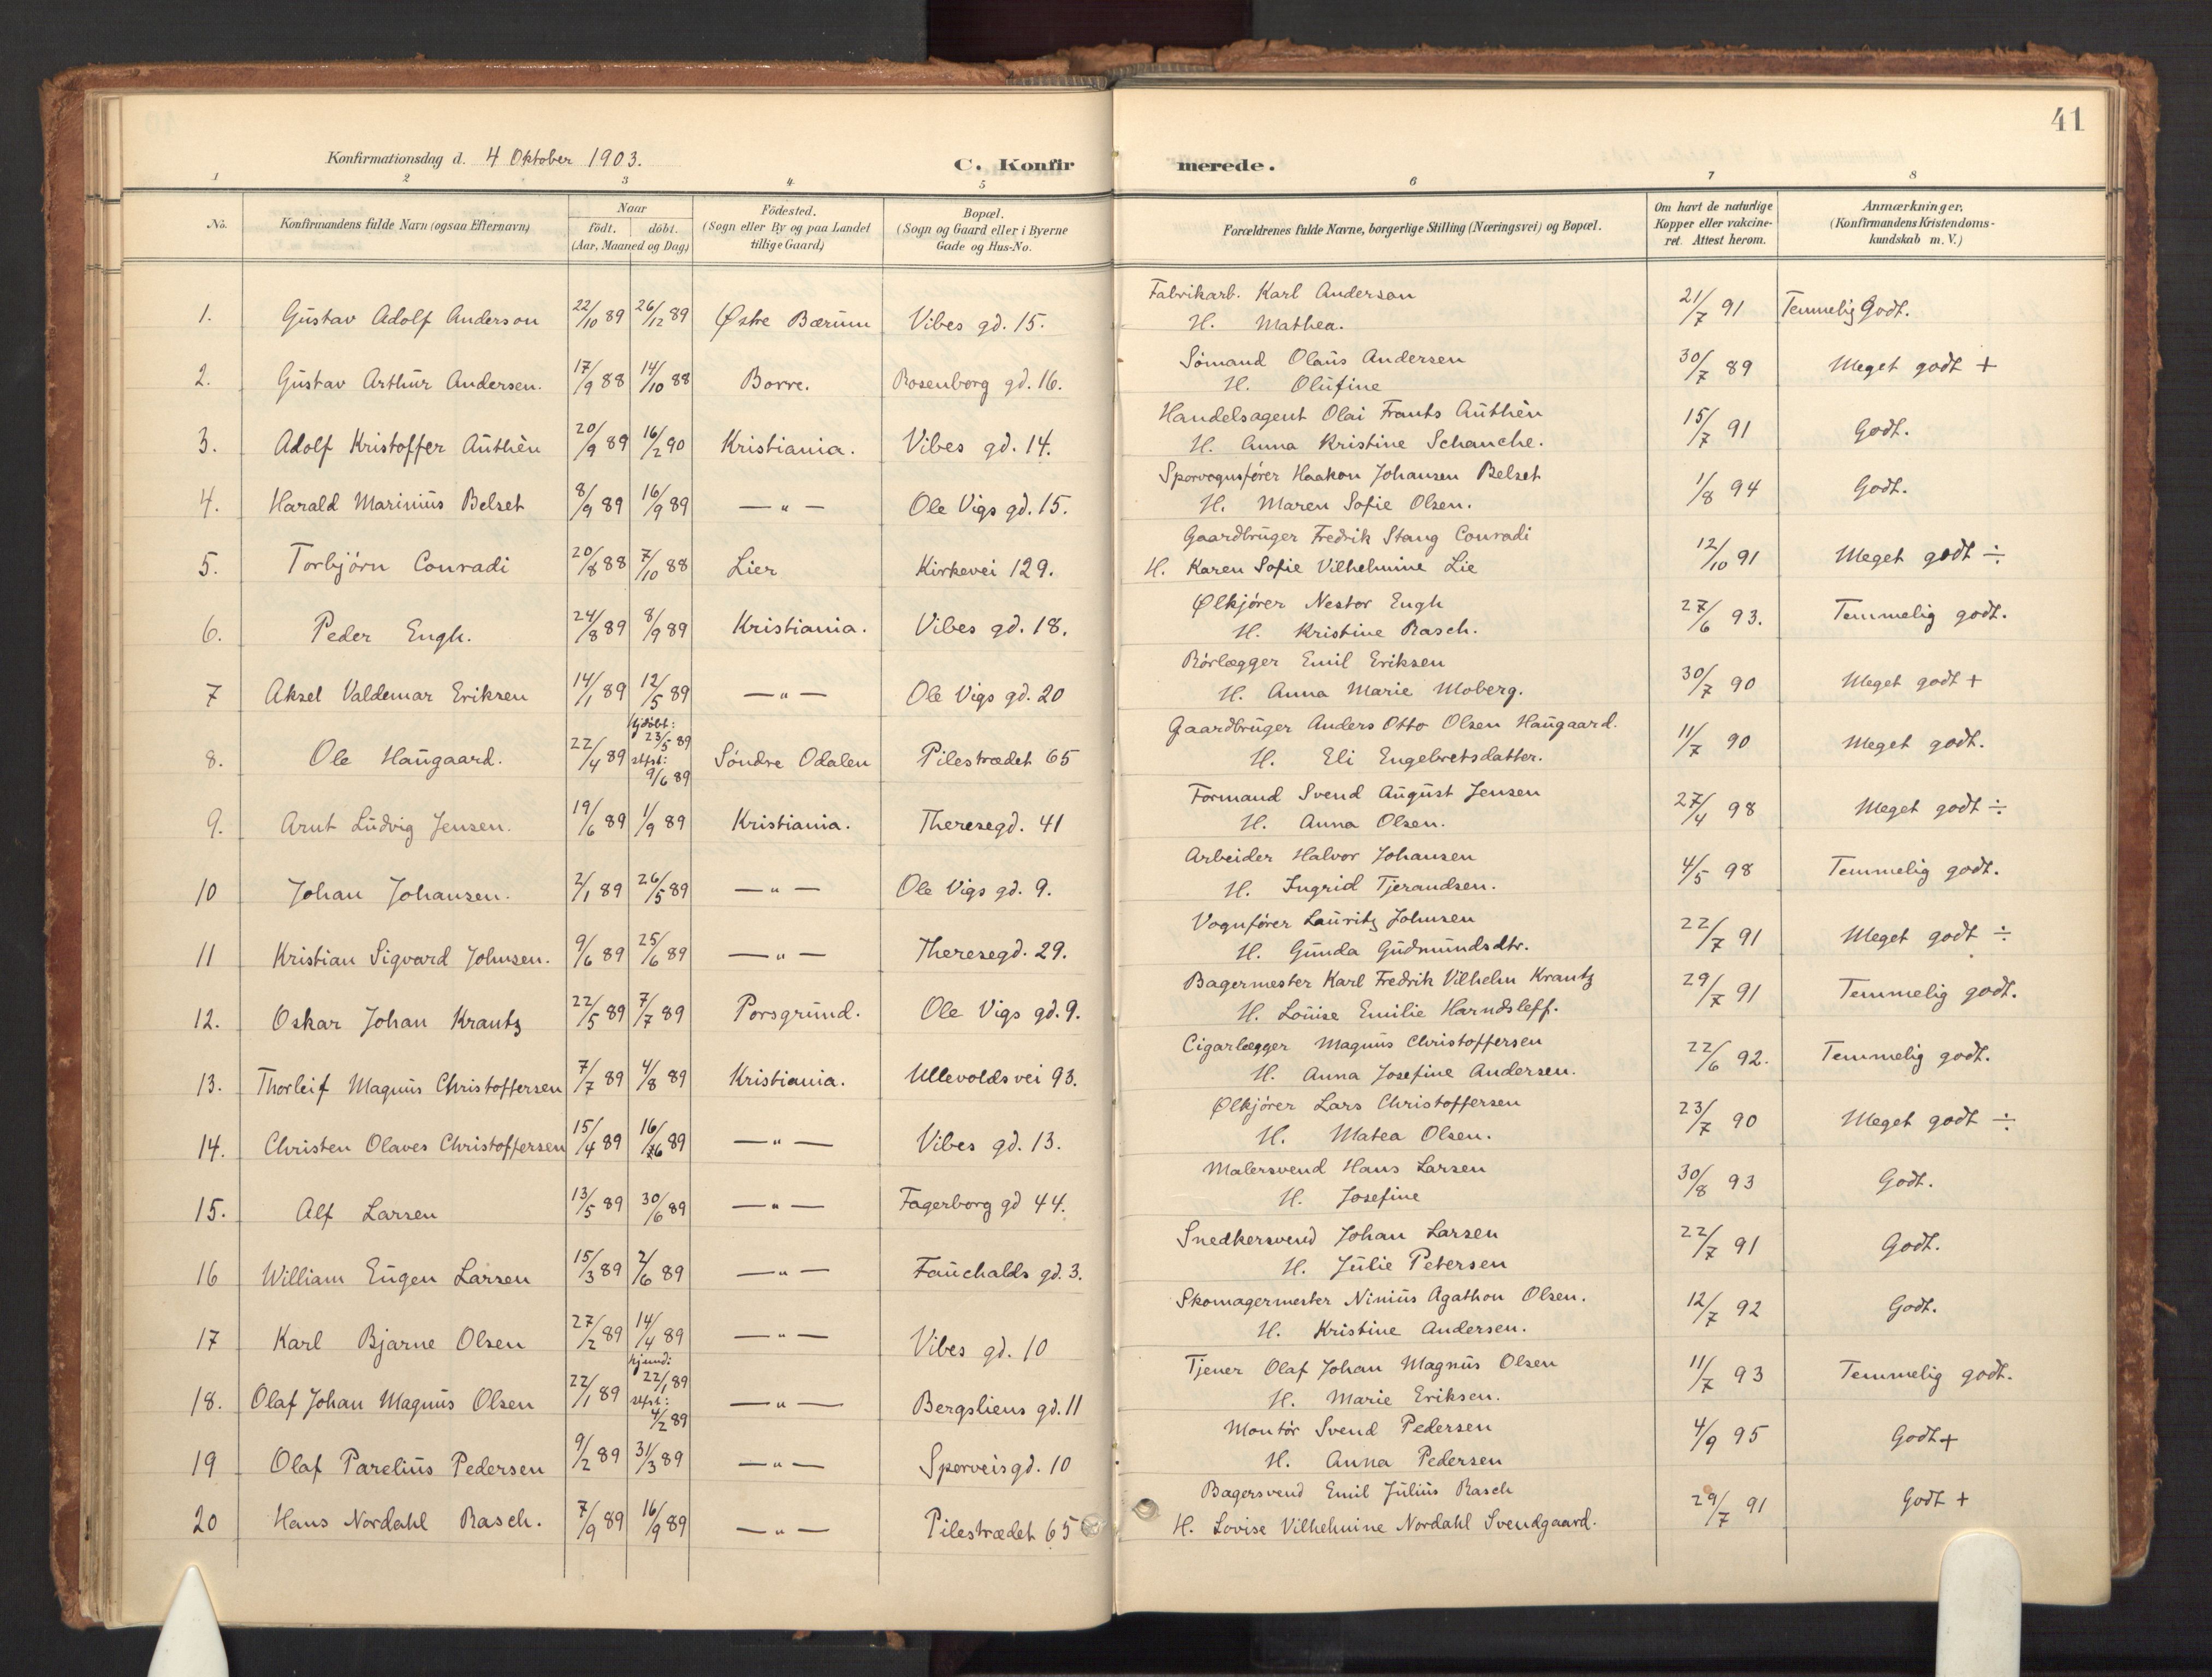 41
Konfirmationsdag d. 4 Oktober 1903.
C. Konfirmerede.
1 2 3 4 5 6 7 8
No. Konfirmandens fulde Navn (ogsaa Efternavn) Naar født. døbt. (Aar, Maaned og Dag) Fødested. (Sogn eller By og paa Landet tillige Gaard) Bopæl. (Sogn og Gaard eller i Byerne Gade og Hus-No. Forældrenes fulde Navne, borgerlige Stilling (Næringsvei) og Bopæl. Om havt de naturlige Kopper eller vakcineret. Attest herom. Anmærkninger, (Konfirmandens Kristendomskundskab m. V.)
1. Gustav Adolf Anderson 22/10 89 26/12 89 Østre Bærum Vibes gd. 15. Fabrikarb. Karl Anderson 21/7 91 Temmelig Godt.
H. Mathea.
2. Gustav Arthur Andersen. 17/9 88 14/10 88 Borre. Rosenborg gd. 16. Sømand Olaus Andersen 30/7 89 Meget godt +
H. Olufine
3. Adolf Kristoffer Authén 20/9 89 16/2 90 Kristiania. Vibes gd. 14. Handelsagent Olai Frants Authén 15/7 91 Godt.
H. Anna Kristine Schanche.
4. Harald Marinius Belset 8/9 89 16/9 89 — " — Ole Vigs gd. 15. Sporvognsfører Haakon Johansen Belset 1/8 94 Godt.
H. Maren Sofie Olsen.
5. Torbjørn Conradi 20/8 88 7/10 88 Lier Kirkevei 129. Gaardbruger Fredrik Stang Conradi 12/10 91 Meget godt ÷
H. Karen Sofie Vilhelmine Lie
6. Peder Engh. 24/8 89 8/9 89 Kristiania. Vibes gd. 18. Ølkjører Nestor Engh 27/6 93. Temmelig godt.
H. Kristine Rasch.
7 Aksel Valdemar Eriksen 14/1 89 12/5 89 — " — Ole Vigs gd. 20 Rørlægger Emil Eriksen 30/7 90 Meget godt +
H. Anna Marie Moberg.
8. Ole Haugaard. 22/4 89 hjdøbt: 23/5 89 stfst: 9/6 89 Søndre Odalen Pilestrædet 65 Gaardbruger Anders Otto Olsen Haugaard. 11/7 90 Meget godt.
H. Eli Engebretsdatter.
9. Arnt Ludvig Jensen. 19/6 89 1/9 89 Kristiania. Theresegd. 41 Formand Svend August Jensen 27/4 98 Meget godt ÷
H. Anna Olsen.
10 Johan Johansen. 2/1 89 26/5 89 — " — Ole Vigs gd. 9. Arbeider Halvor Johansen 4/5 98 Temmelig godt.
H. Ingrid Tjerandsen.
11 Kristian Sigvard Johnsen. 9/6 89 25/6 89 — " — Theresegd. 29. Vognfører Lauritz Johnsen 22/7 91 Meget godt ÷
H. Gunda Gudmundsdtr.
12. Oskar Johan Krantz 22/5 89 7/7 89 Porsgrund. Ole Vigs gd. 9. Bagermester Karl Fredrik Vilhelm Krantz 29/7 91 Temmelig godt.
H. Louise Emilie Harndsleff.
13. Thorleif Magnus Christoffersen 7/7 89 4/8 89 Kristiania. Ullevoldsvei 93. Cigarlægger Magnus Christoffersen 22/6 92. Temmelig godt.
H. Anna Josefine Andersen.
14. Christen Olaves Christoffersen 15/4 89 16/6 89 — " — Vibes gd. 13. Ølkjører Lars Christoffersen 23/7 90 Meget godt ÷
H. Matea Olsen.
15. Alf Larsen 13/5 89 30/6 89 — " — Fagerborg gd 44. Malersvend Hans Larsen 30/8 93 Godt.
H. Josefine
16 William Eugen Larsen 15/3 89 2/6 89 — " — Fauchalds gd. 3. Snedkersvend Johan Larsen 22/7 91 Godt.
H. Julie Petersen
17 Karl Bjarne Olsen 27/2 89 14/4 89 — " — Vibes gd. 10 Skomagermester Ninius Agathon Olsen. 12/7 92 Godt.
H. Kristine Andersen.
18. Olaf Johan Magnus Olsen 22/1 89 hjmd: 22/1 89 stfst: 4/2 89 — " — Bergsliens gd. 11 Tjener Olaf Johan Magnus Olsen 11/7 93 Temmelig godt.
H. Marie Eriksen.
19 Olaf Parelius Pedersen 9/2 89 31/3 89 — " — Sporveisgd. 10 Montør Svend Pedersen 4/9 95 Godt +
H. Anna Pedersen
20 Hans Nordahl Rasch. 7/9 89 16/9 89 — " — Pilestrædet 65 Bagersvend Emil Julius Rasch 29/7 91 Godt +
H. Lovise Vilhelmine Nordahl Svendgaard.